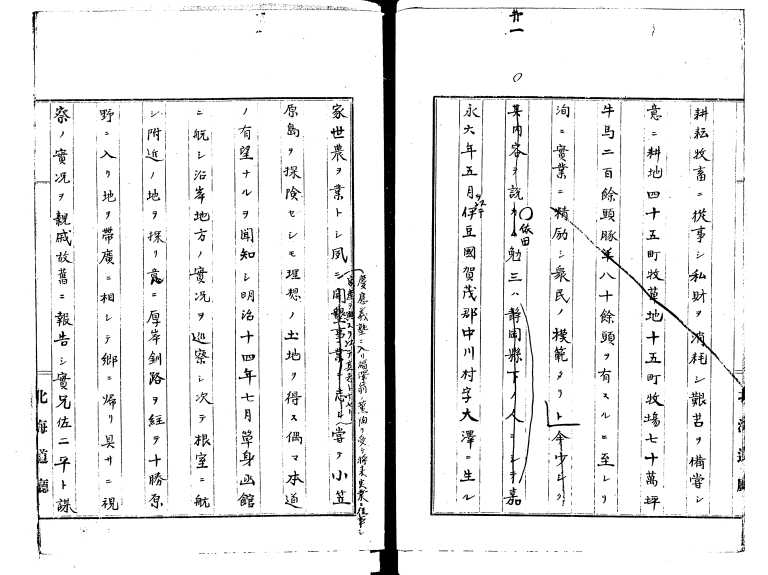 廿一
耕耘牧畜ニ從事シ私財ヲ消耗シ艱苦ヲ備嘗シ
意ニ耕地四十五町牧草地十五町牧場七十萬坪
牛馬二百餘頭豚羊八十餘頭ヲ有スルニ至レリ
洵ニ實業ニ精励シ衆民ノ模範タリト
其内容ヲ説
依田
勉三ハ静岡縣下ノ人ニシテ嘉
永六年五月伊豆國賀茂郡中川村字大澤ニ生ル
北海道廳
慶應義塾ニ入リ福澤翁ノ薫陶ヲ受ケ将来
家世農ヲ業トシ夙ニ開墾事業ニ志シ嘗テ小笠
原島ヲ探険セシモ理想ノ土地ヲ得ス偶マ本道
ノ有望ナルヲ聞知シ明治十四年七月單身函館
ニ航シ沿岸地方ノ實況ヲ巡察シ次テ根室ニ航
シ附近ノ地ヲ探リ更ニ厚岸釧路ヲ経テ十勝原
野ニ入リ地ヲ帶廣ニ相シテ郷ニ帰リ具サニ視
察ノ實況ヲ親戚故舊ニ報告シ實兄佐二平ト謀
北海道廳